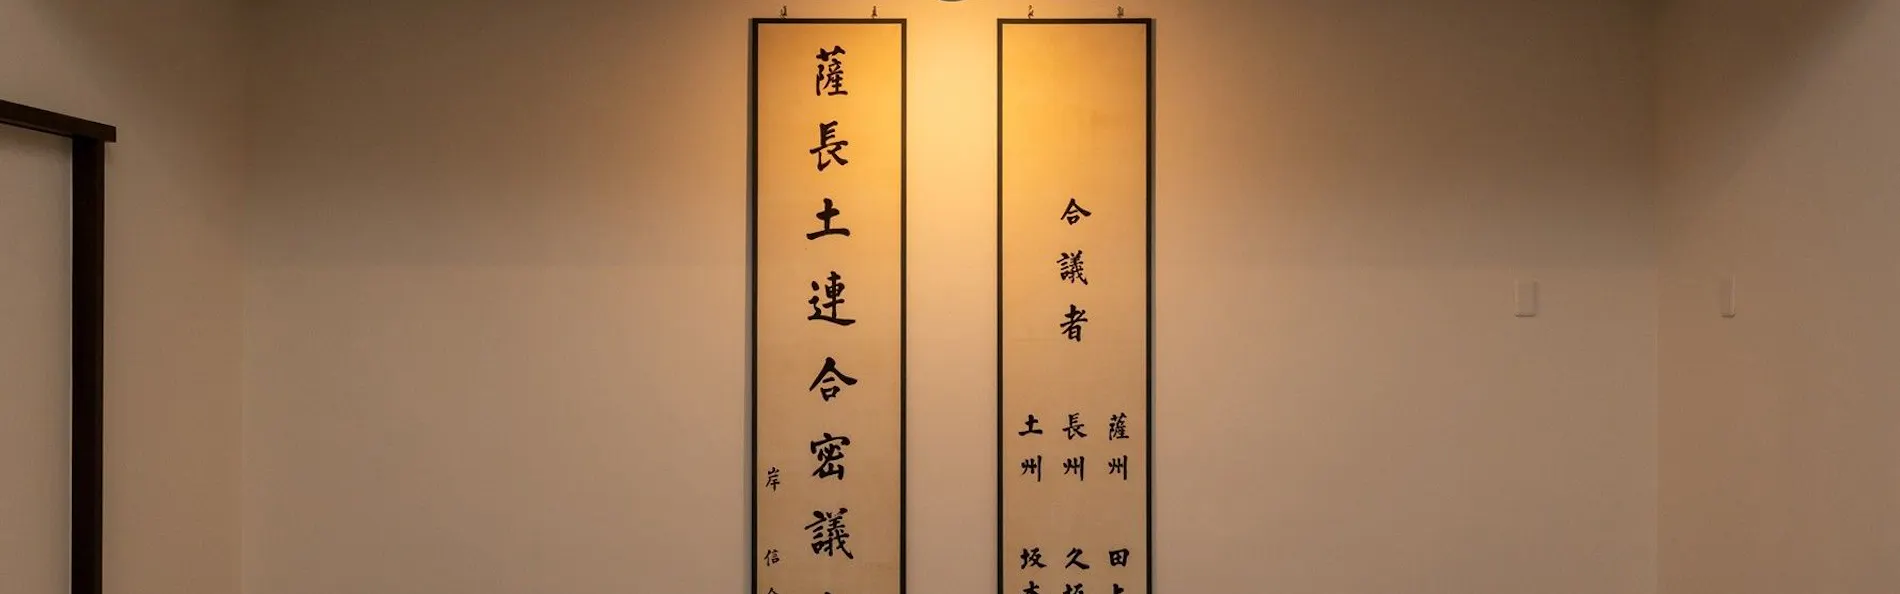 合議者
薩州 田
長州 久坂
土州 坂本
薩長土連合密議
岸 信